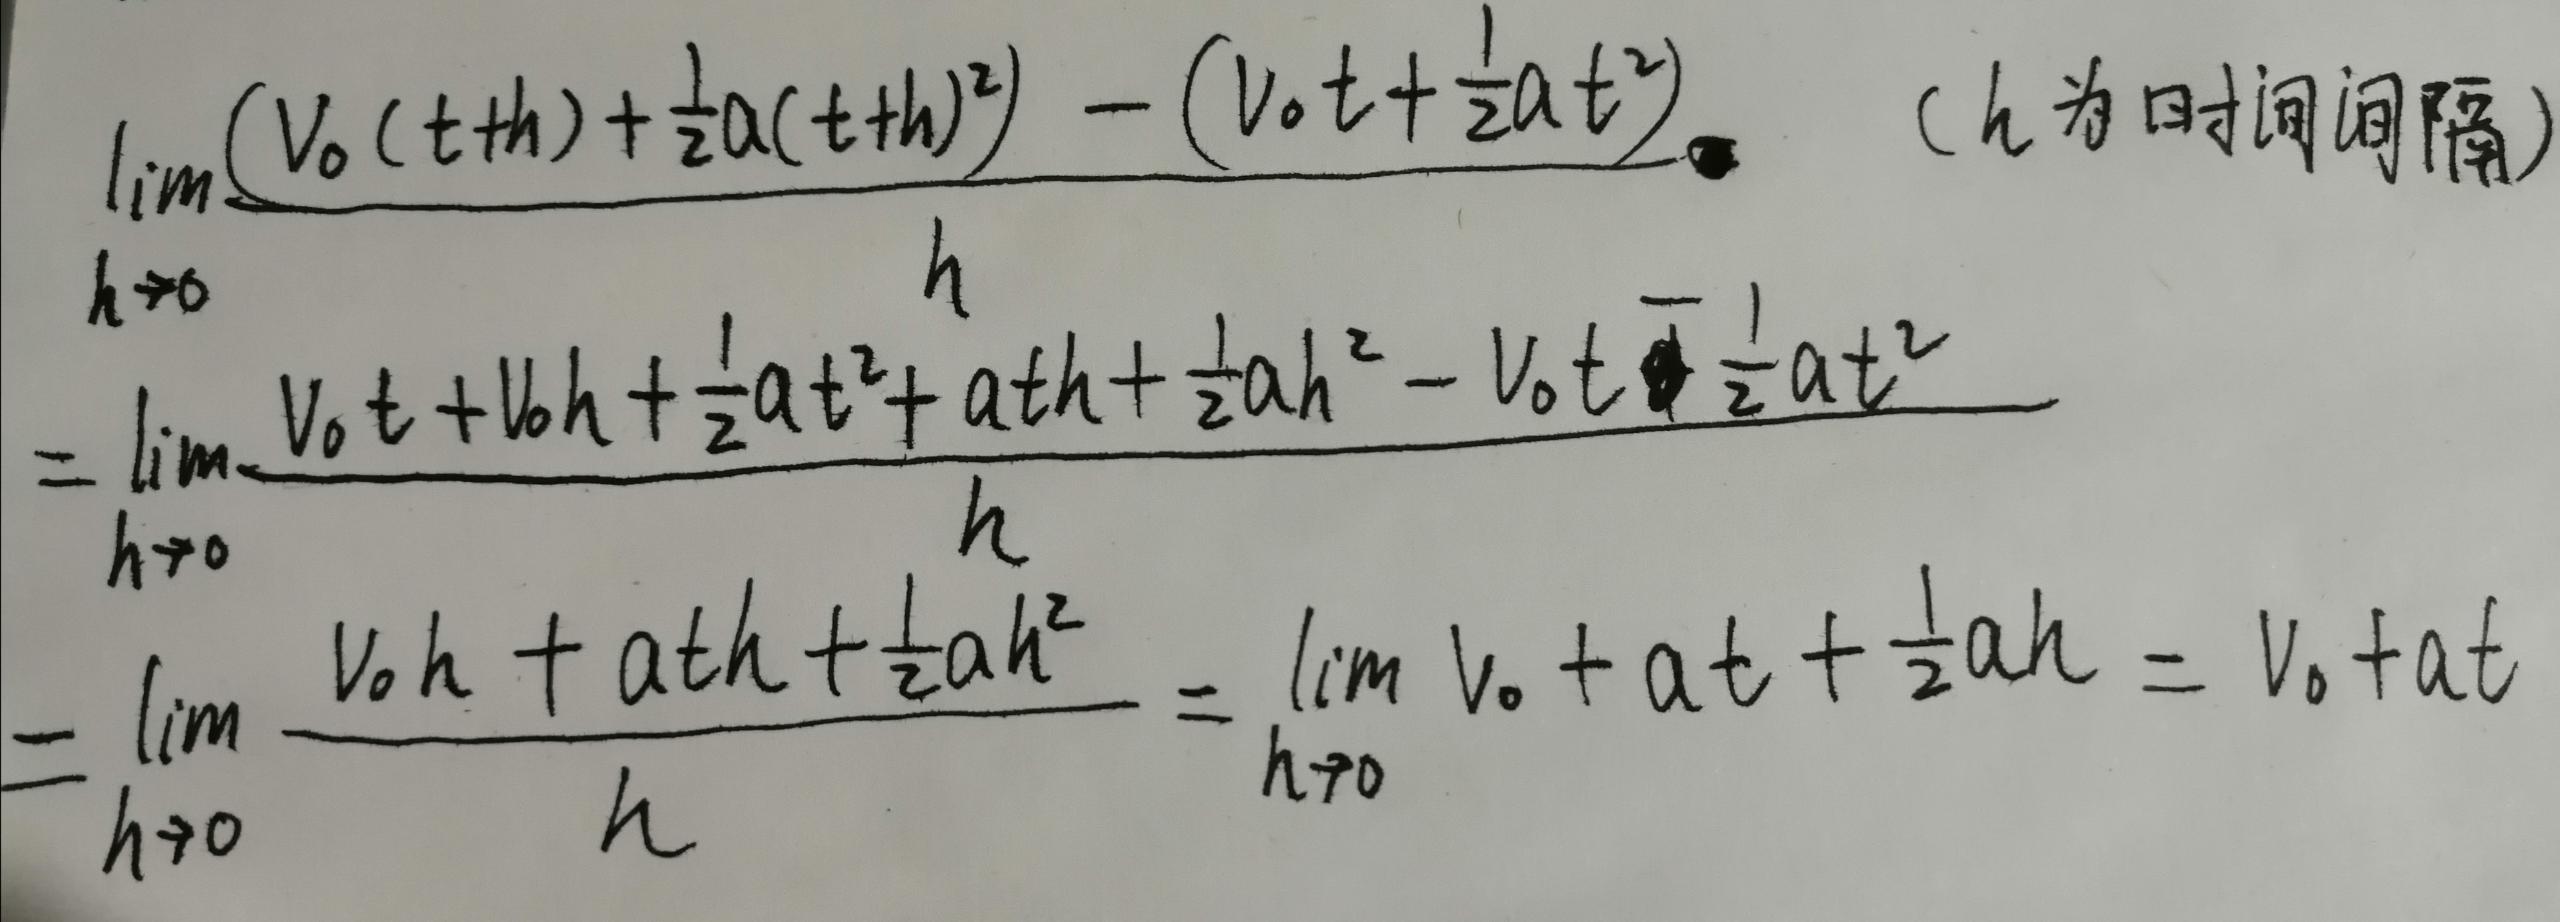 lim h→0 ((V₀(t+h)+½a(t+h)²) − (V₀t+½at²))/h (h为时间间隔)
= lim h→0 (V₀t+V₀h+½at²+ath+½ah²−V₀t−½at²)/h
= lim h→0 (V₀h+ath+½ah²)/h = lim h→0 V₀+at+½ah = V₀+at